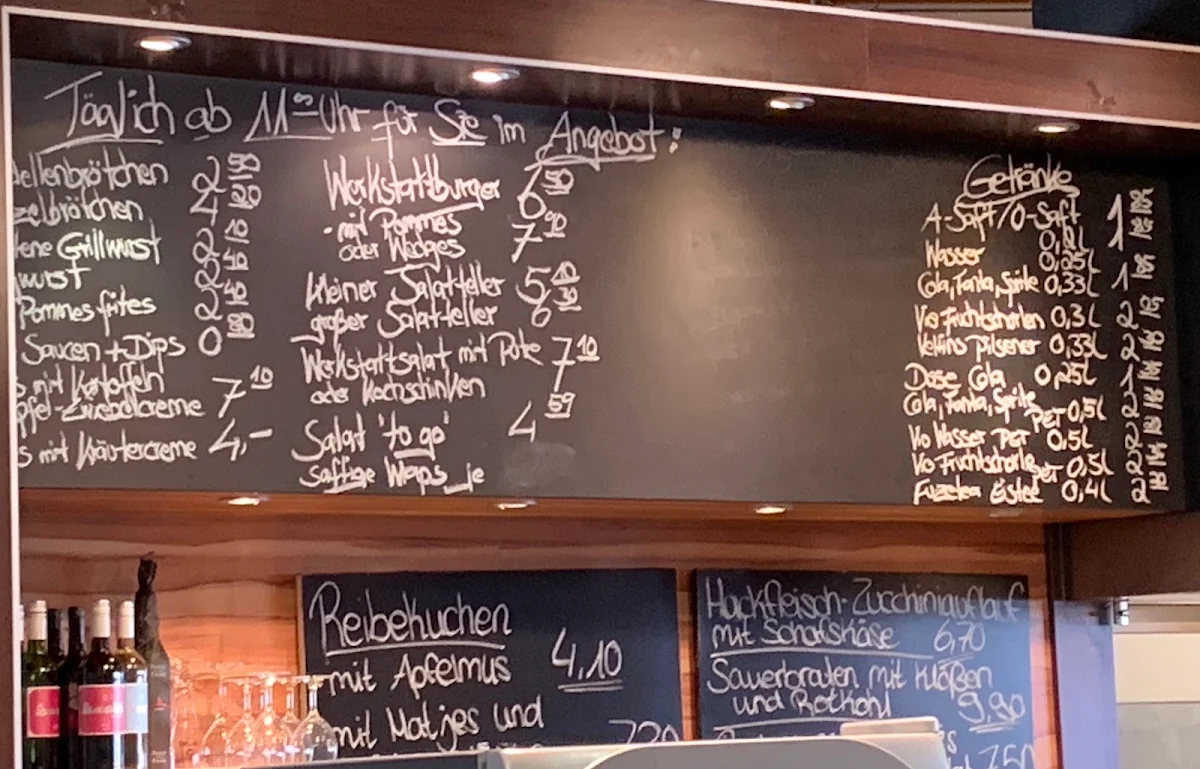 Täglich ab 11⁰⁰ Uhr für Sie im Angebot:
ellenbrötchen 2 50
zelbrötchen 4 20
ene Grillwurst 2 10
wurst 2 40
Pommes frites 2 40
Saucen + Dips 0 80
mit Kartoffeln
pfel-Zwiebelcreme 7 10
s mit Kräutercreme 4,-
Werkstattburger 6 50
- mit Pommes
oder Wedges 7 90
kleiner Salatteller 5 10
großer Salatteller 6 30
Werkstattsalat mit Pute 7 10
oder Kochschinken
Salat 'to go' 4 59
saftige Wraps je
Getränke
A-Saft/O-Saft
0,2l
Wasser 0,25l
Cola, Fanta, Sprite 0,33l
Vio Fruchtschorlen 0,3l
Veltins Pilsener 0,33l
Dose Cola 0,25l
Cola, Fanta, Sprite
PET 0,5l
Vio Wasser PET 0,5l
Vio Fruchtschorle
PET 0,5l
Fuzetea Eistee 0,4l
Reibekuchen
mit Apfelmus 4,10
mit Matjes und
Hackfleisch-Zucchiniauflauf
mit Schafskäse 6,70
Sauerbraten mit Klößen
und Rotkohl 9,90
7,50